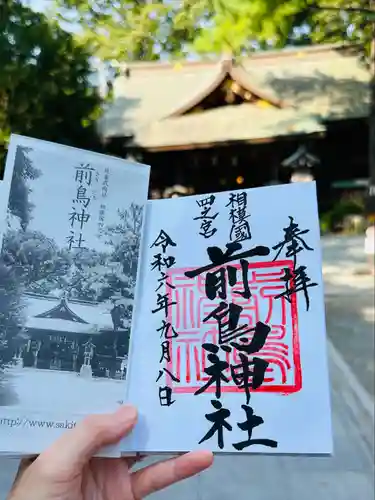 奉拝
相模國
四之宮
前鳥神社
令和六年九月八日
前鳥神社
http://www.saki